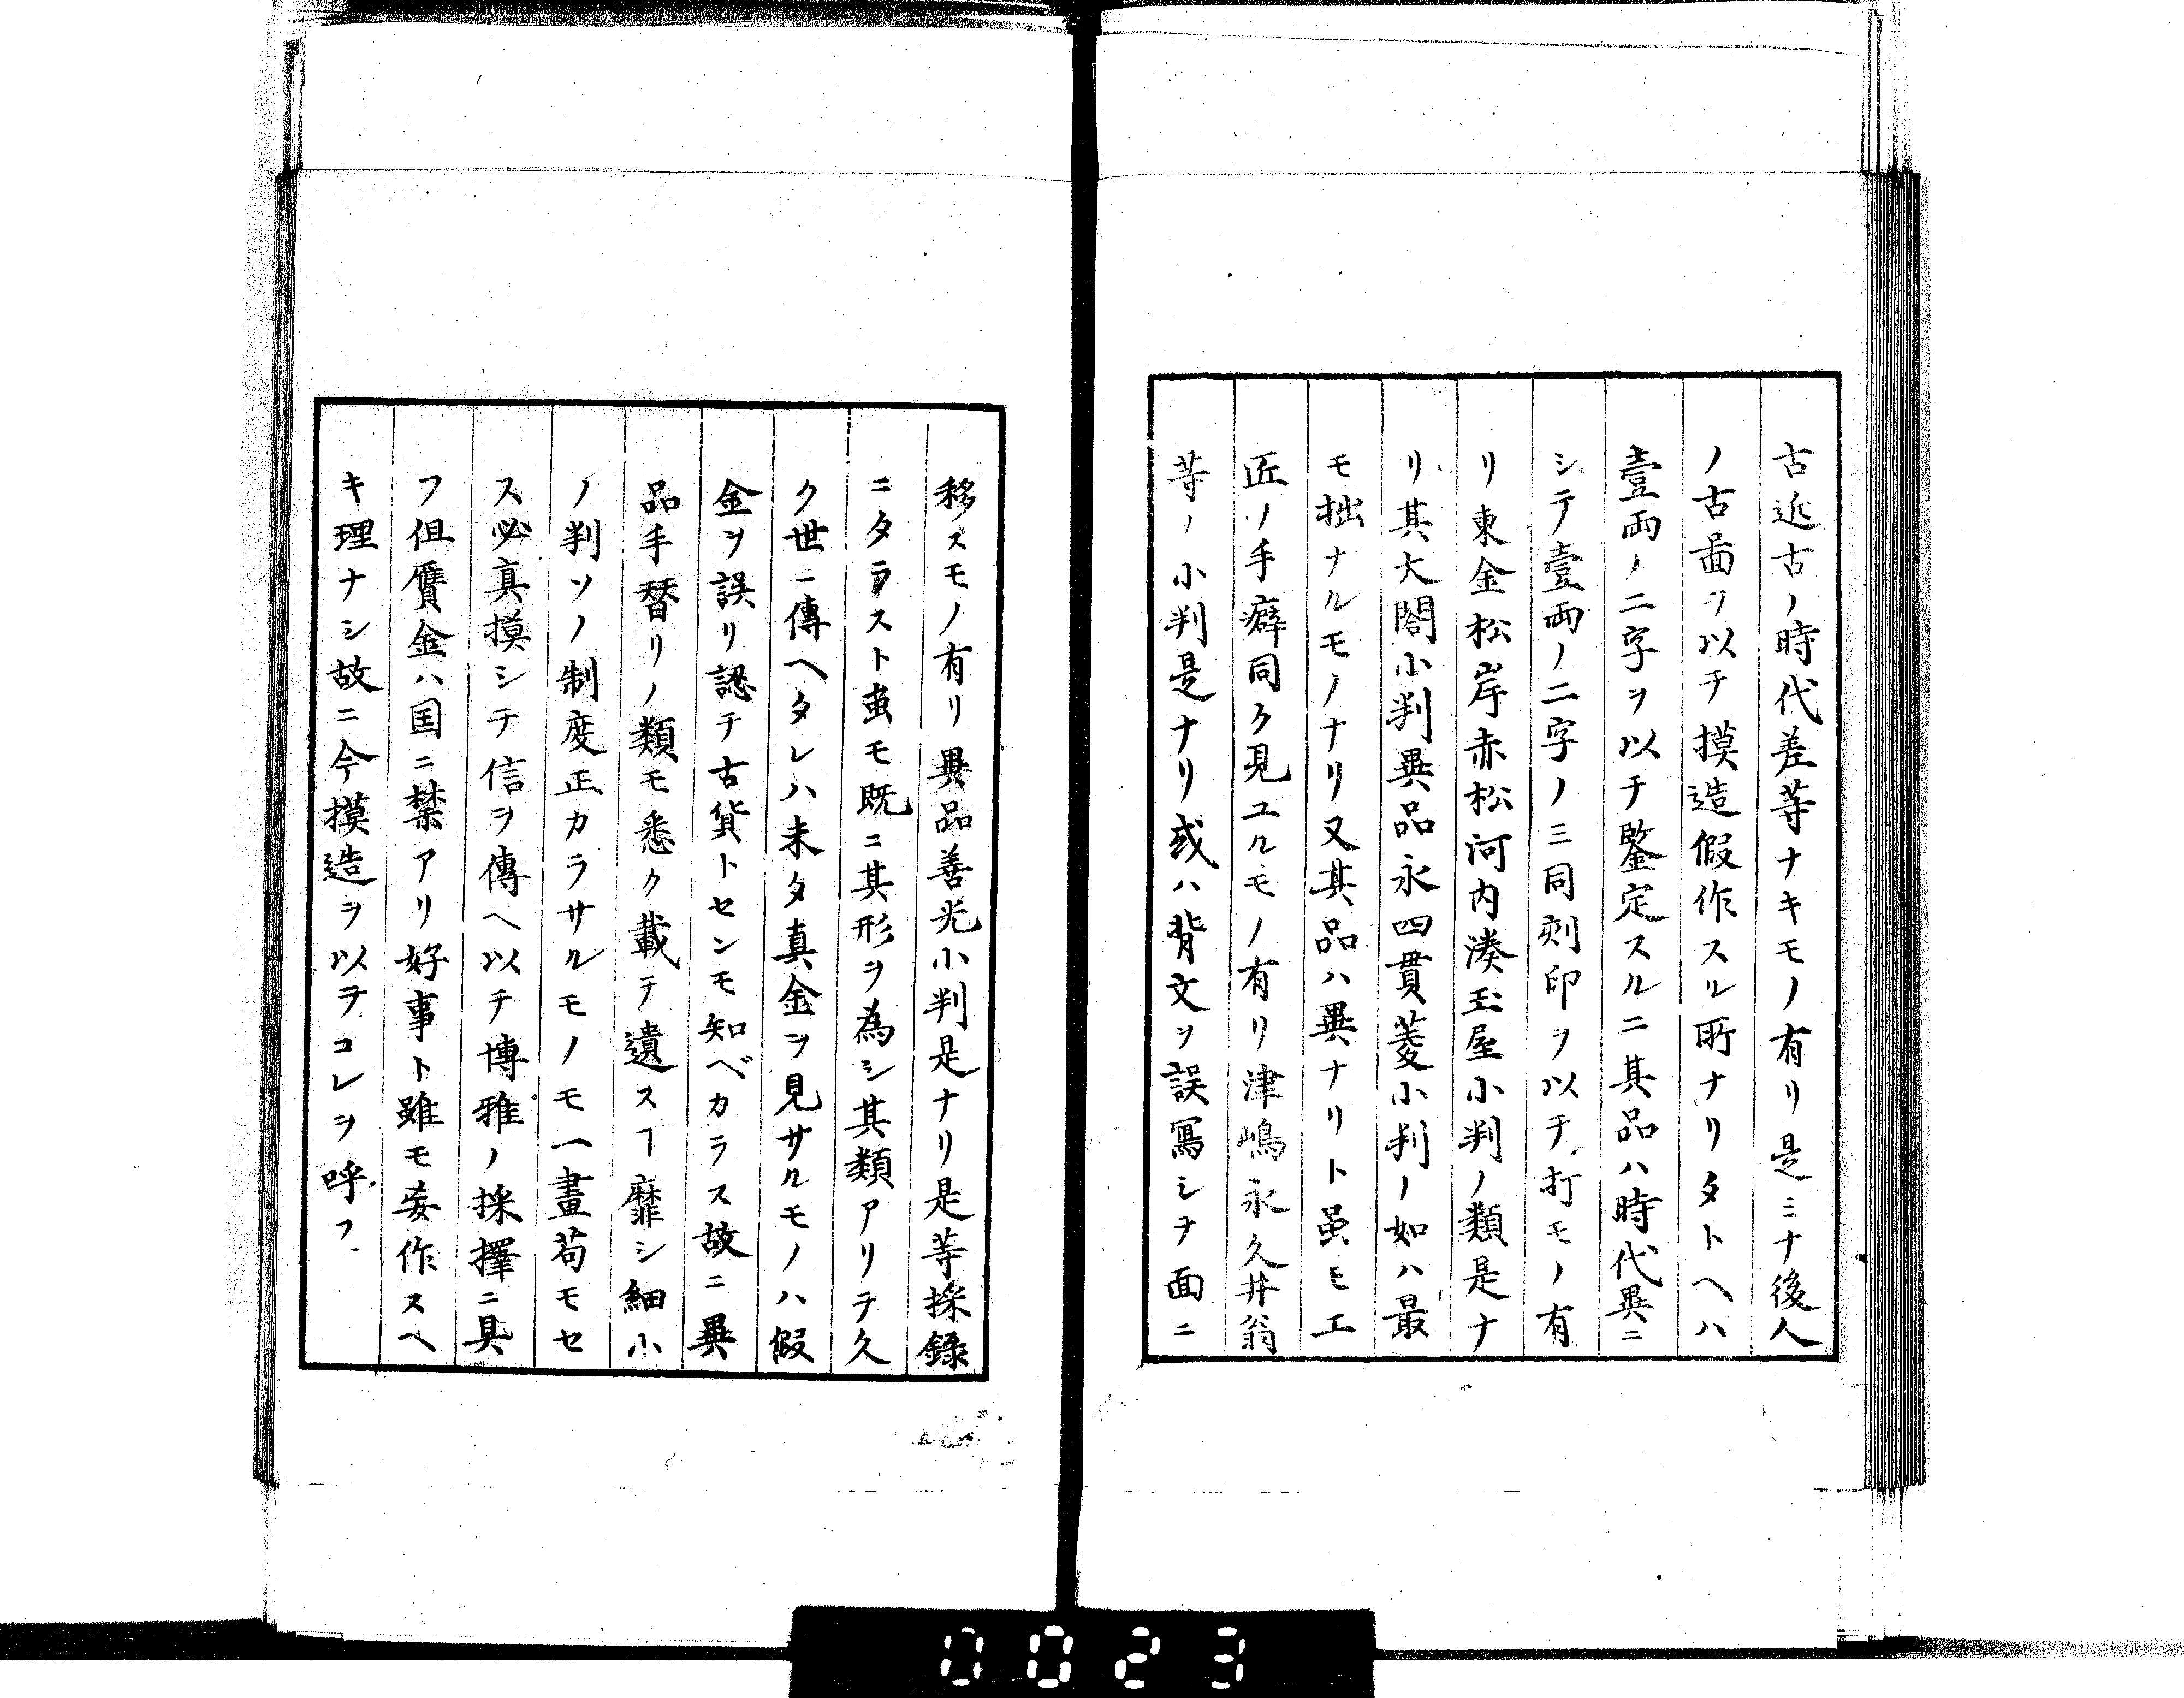 古近古ノ時代差等ナキモノ有リ是ミナ後人
ノ古啚ヲ以テ摸造假作スル所ナリタトヘハ
壹両ノ二字ヲ以テ鑒定スルニ其品ハ時代異ニ
シテ壹両ノ二字ノ三同刻印ヲ以テ打モノ有
リ東金松岸赤松河内湊玉屋小判ノ類是ナ
リ其大閤小判異品永四貫菱小判ノ如ハ最
モ拙ナルモノナリ又其品ハ異ナリト虽モ工
匠ノ手癖同ク見ユルモノ有リ津嶋永久井翁
等ノ小判是ナリ或ハ背文ヲ誤冩シテ面ニ
移スモノ有リ異品善光小判是ナリ是等採録
ニタラスト虽モ既ニ其形ヲ為シ其類アリテ久
ク世ニ傳ヘタレハ未タ真金ヲ見サルモノハ假
金ヲ誤リ認テ古貨トセンモ知ベカラス故ニ異
品手替リノ類モ悉ク載テ遺スヿ靡シ細小
ノ判ソノ制度正カラサルモノモ一畫苟モセ
ス必真摸シテ信ヲ傳ヘ以テ博雅ノ採擇ニ具
フ但贋金ハ国ニ禁アリ好事ト雖モ妄作スヘ
キ理ナシ故ニ今摸造ヲ以テコレヲ呼フ
0023